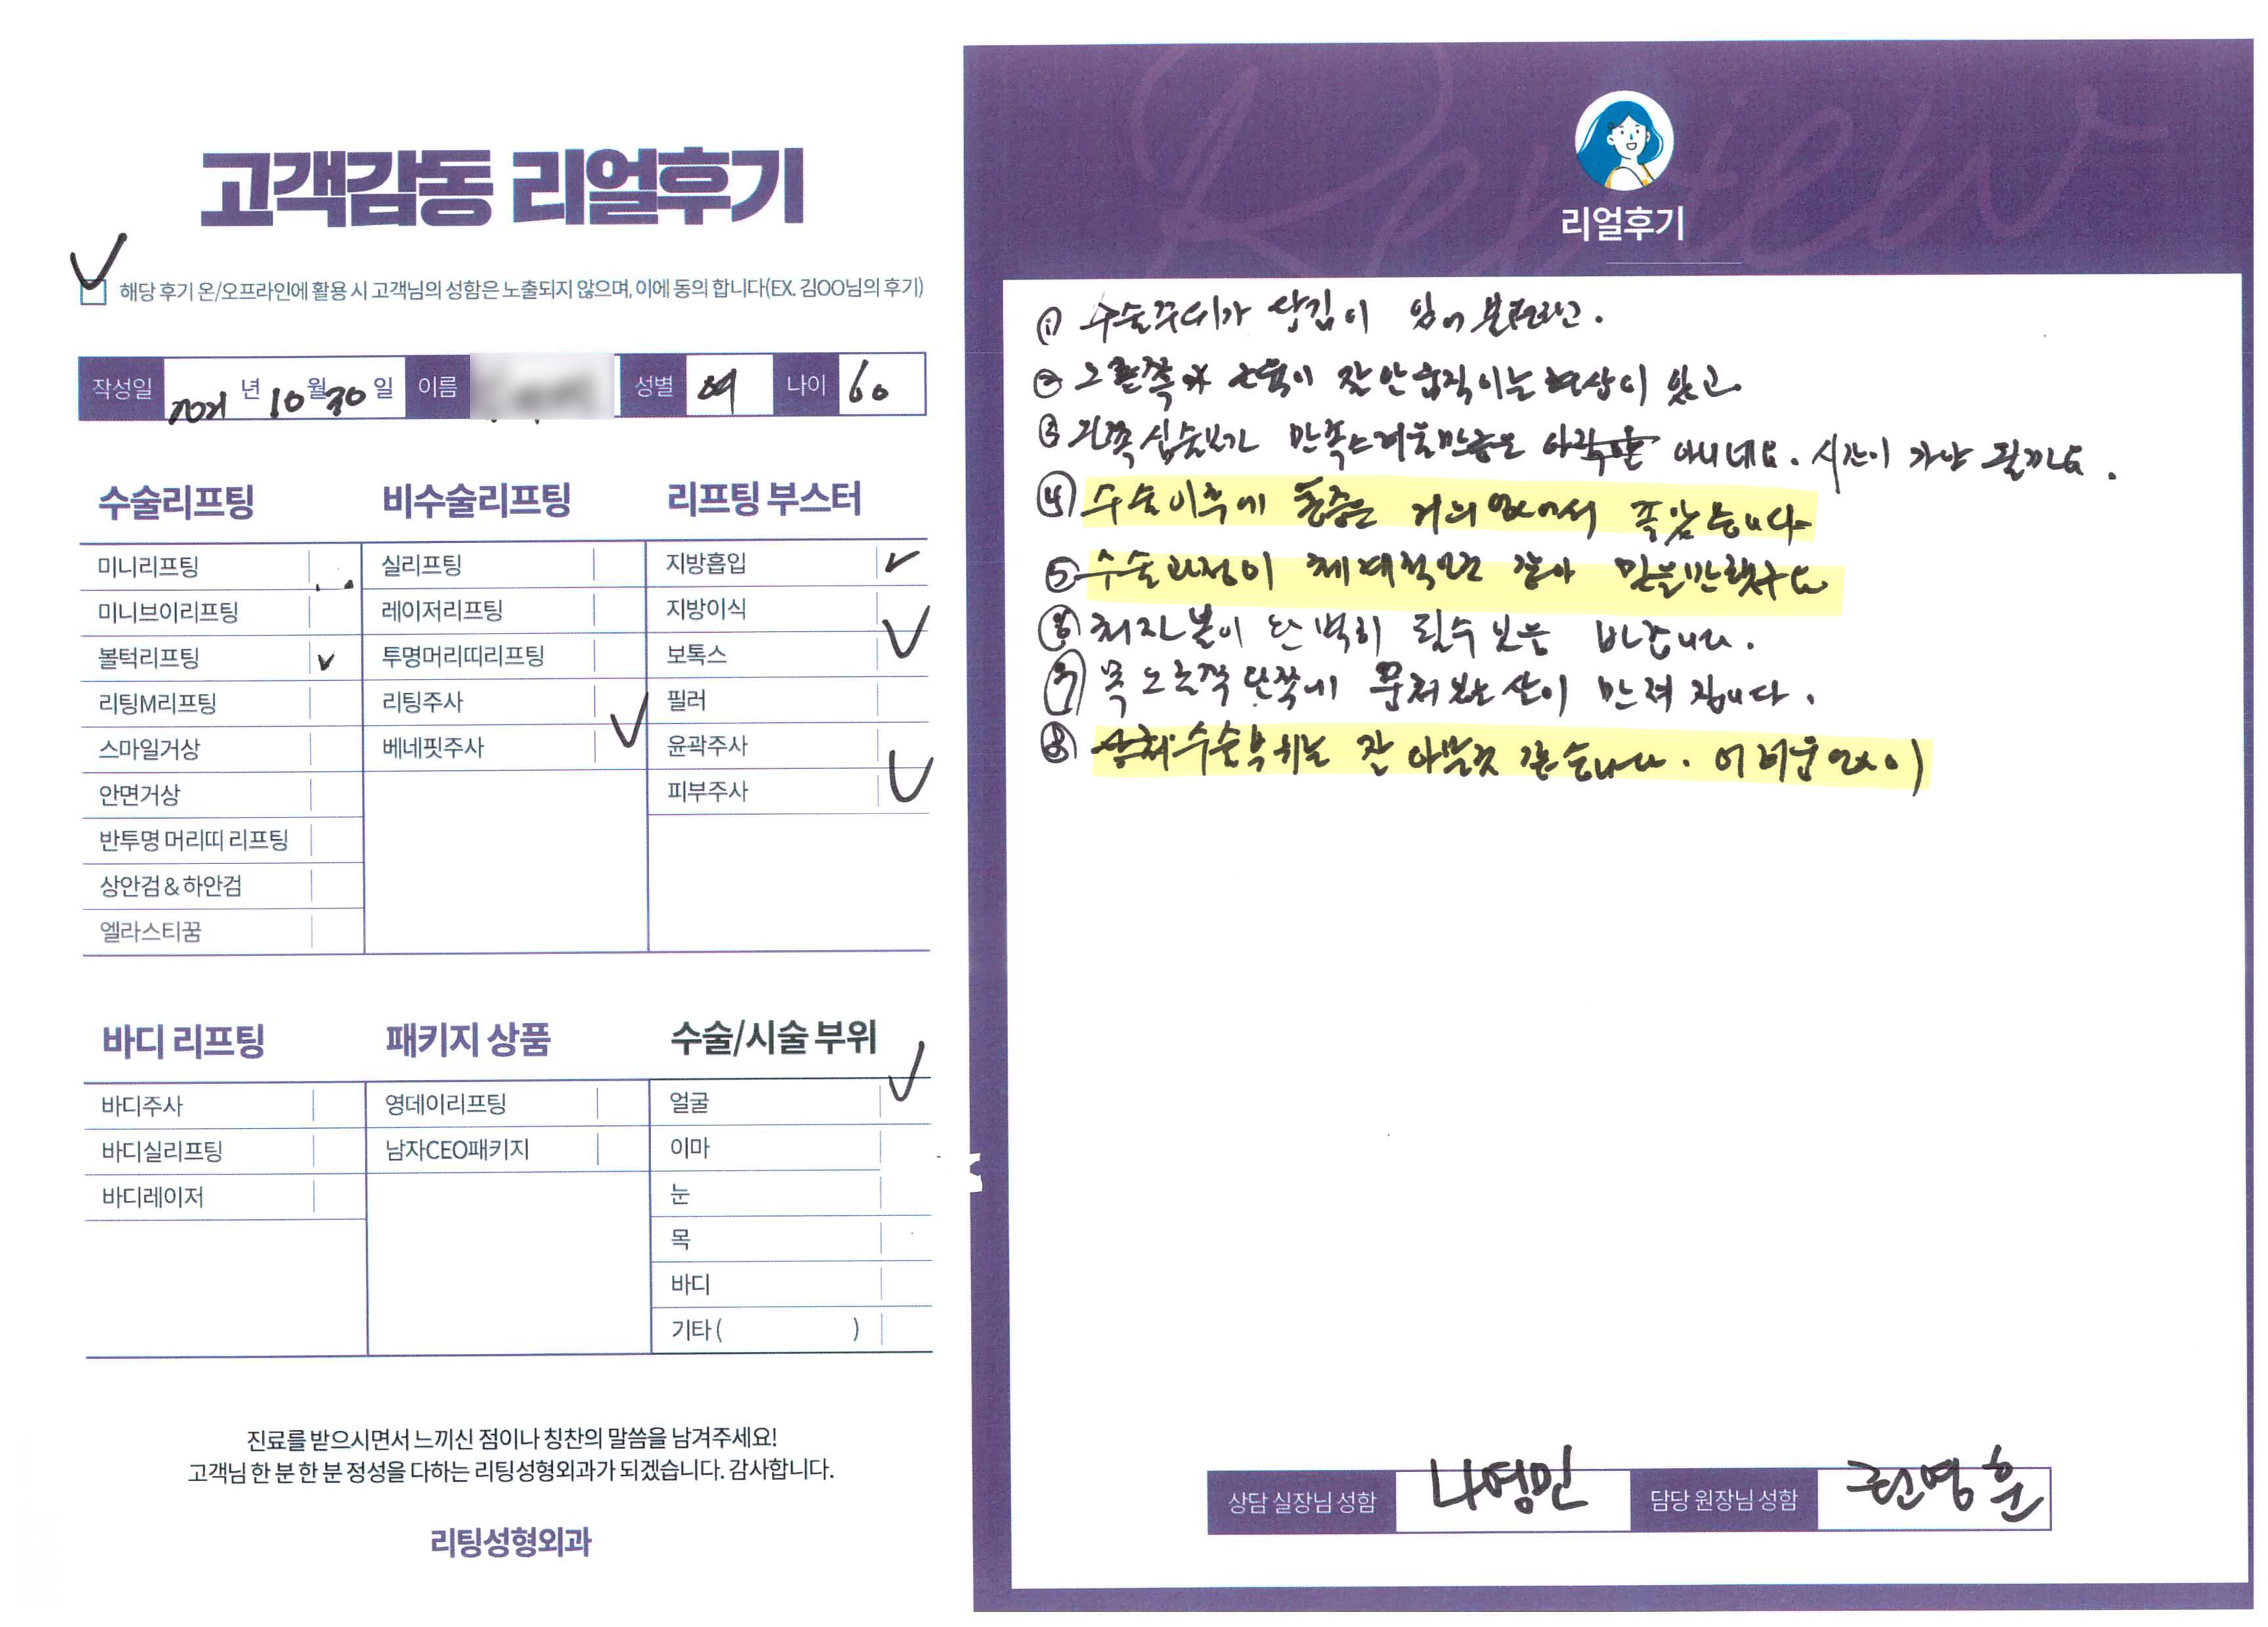 고객감동 리얼후기
해당 후기 온/오프라인에 활용 시 고객님의 성함은 노출되지 않으며, 이에 동의 합니다(EX. 김OO님의 후기)
작성일 2021 년 10 월 30 일 이름 성별 여 나이 60
수술리프팅
미니리프팅
미니브이리프팅
볼턱리프팅
리팅M리프팅
스마일거상
안면거상
반투명 머리띠 리프팅
상안검 & 하안검
엘라스티꿈
비수술리프팅
실리프팅
레이저리프팅
투명머리띠리프팅
리팅주사
베네핏주사
리프팅 부스터
지방흡입
지방이식
보톡스
필러
윤곽주사
피부주사
바디 리프팅
바디주사
바디실리프팅
바디레이저
패키지 상품
영데이리프팅
남자CEO패키지
수술/시술 부위
얼굴
이마
눈
목
바디
기타 ( )
진료를 받으시면서 느끼신 점이나 칭찬의 말씀을 남겨주세요!
고객님 한 분 한 분 정성을 다하는 리팅성형외과가 되겠습니다. 감사합니다.
리팅성형외과
Review
리얼후기
① 수술주위가 땅김이 있어 불편하고.
② 오른쪽 근육이 잘 안움직이는 현상이 있고
③ 왼쪽 만족스러울만큼은 아니네요. 시간이 가야 될까요.
④ 수술이후에 통증은 거의 없어서 좋았습니다
⑤ 수술과정이 체계적인것 같아 믿을만했구요
⑥ 바랍니다.
⑦ 목 오른쪽 안쪽에 만져 집니다.
⑧ 수술부위는 잘 아물것 같습니다. 어려움 없이
상담 실장님 성함 나영민 담당 원장님 성함 권영훈